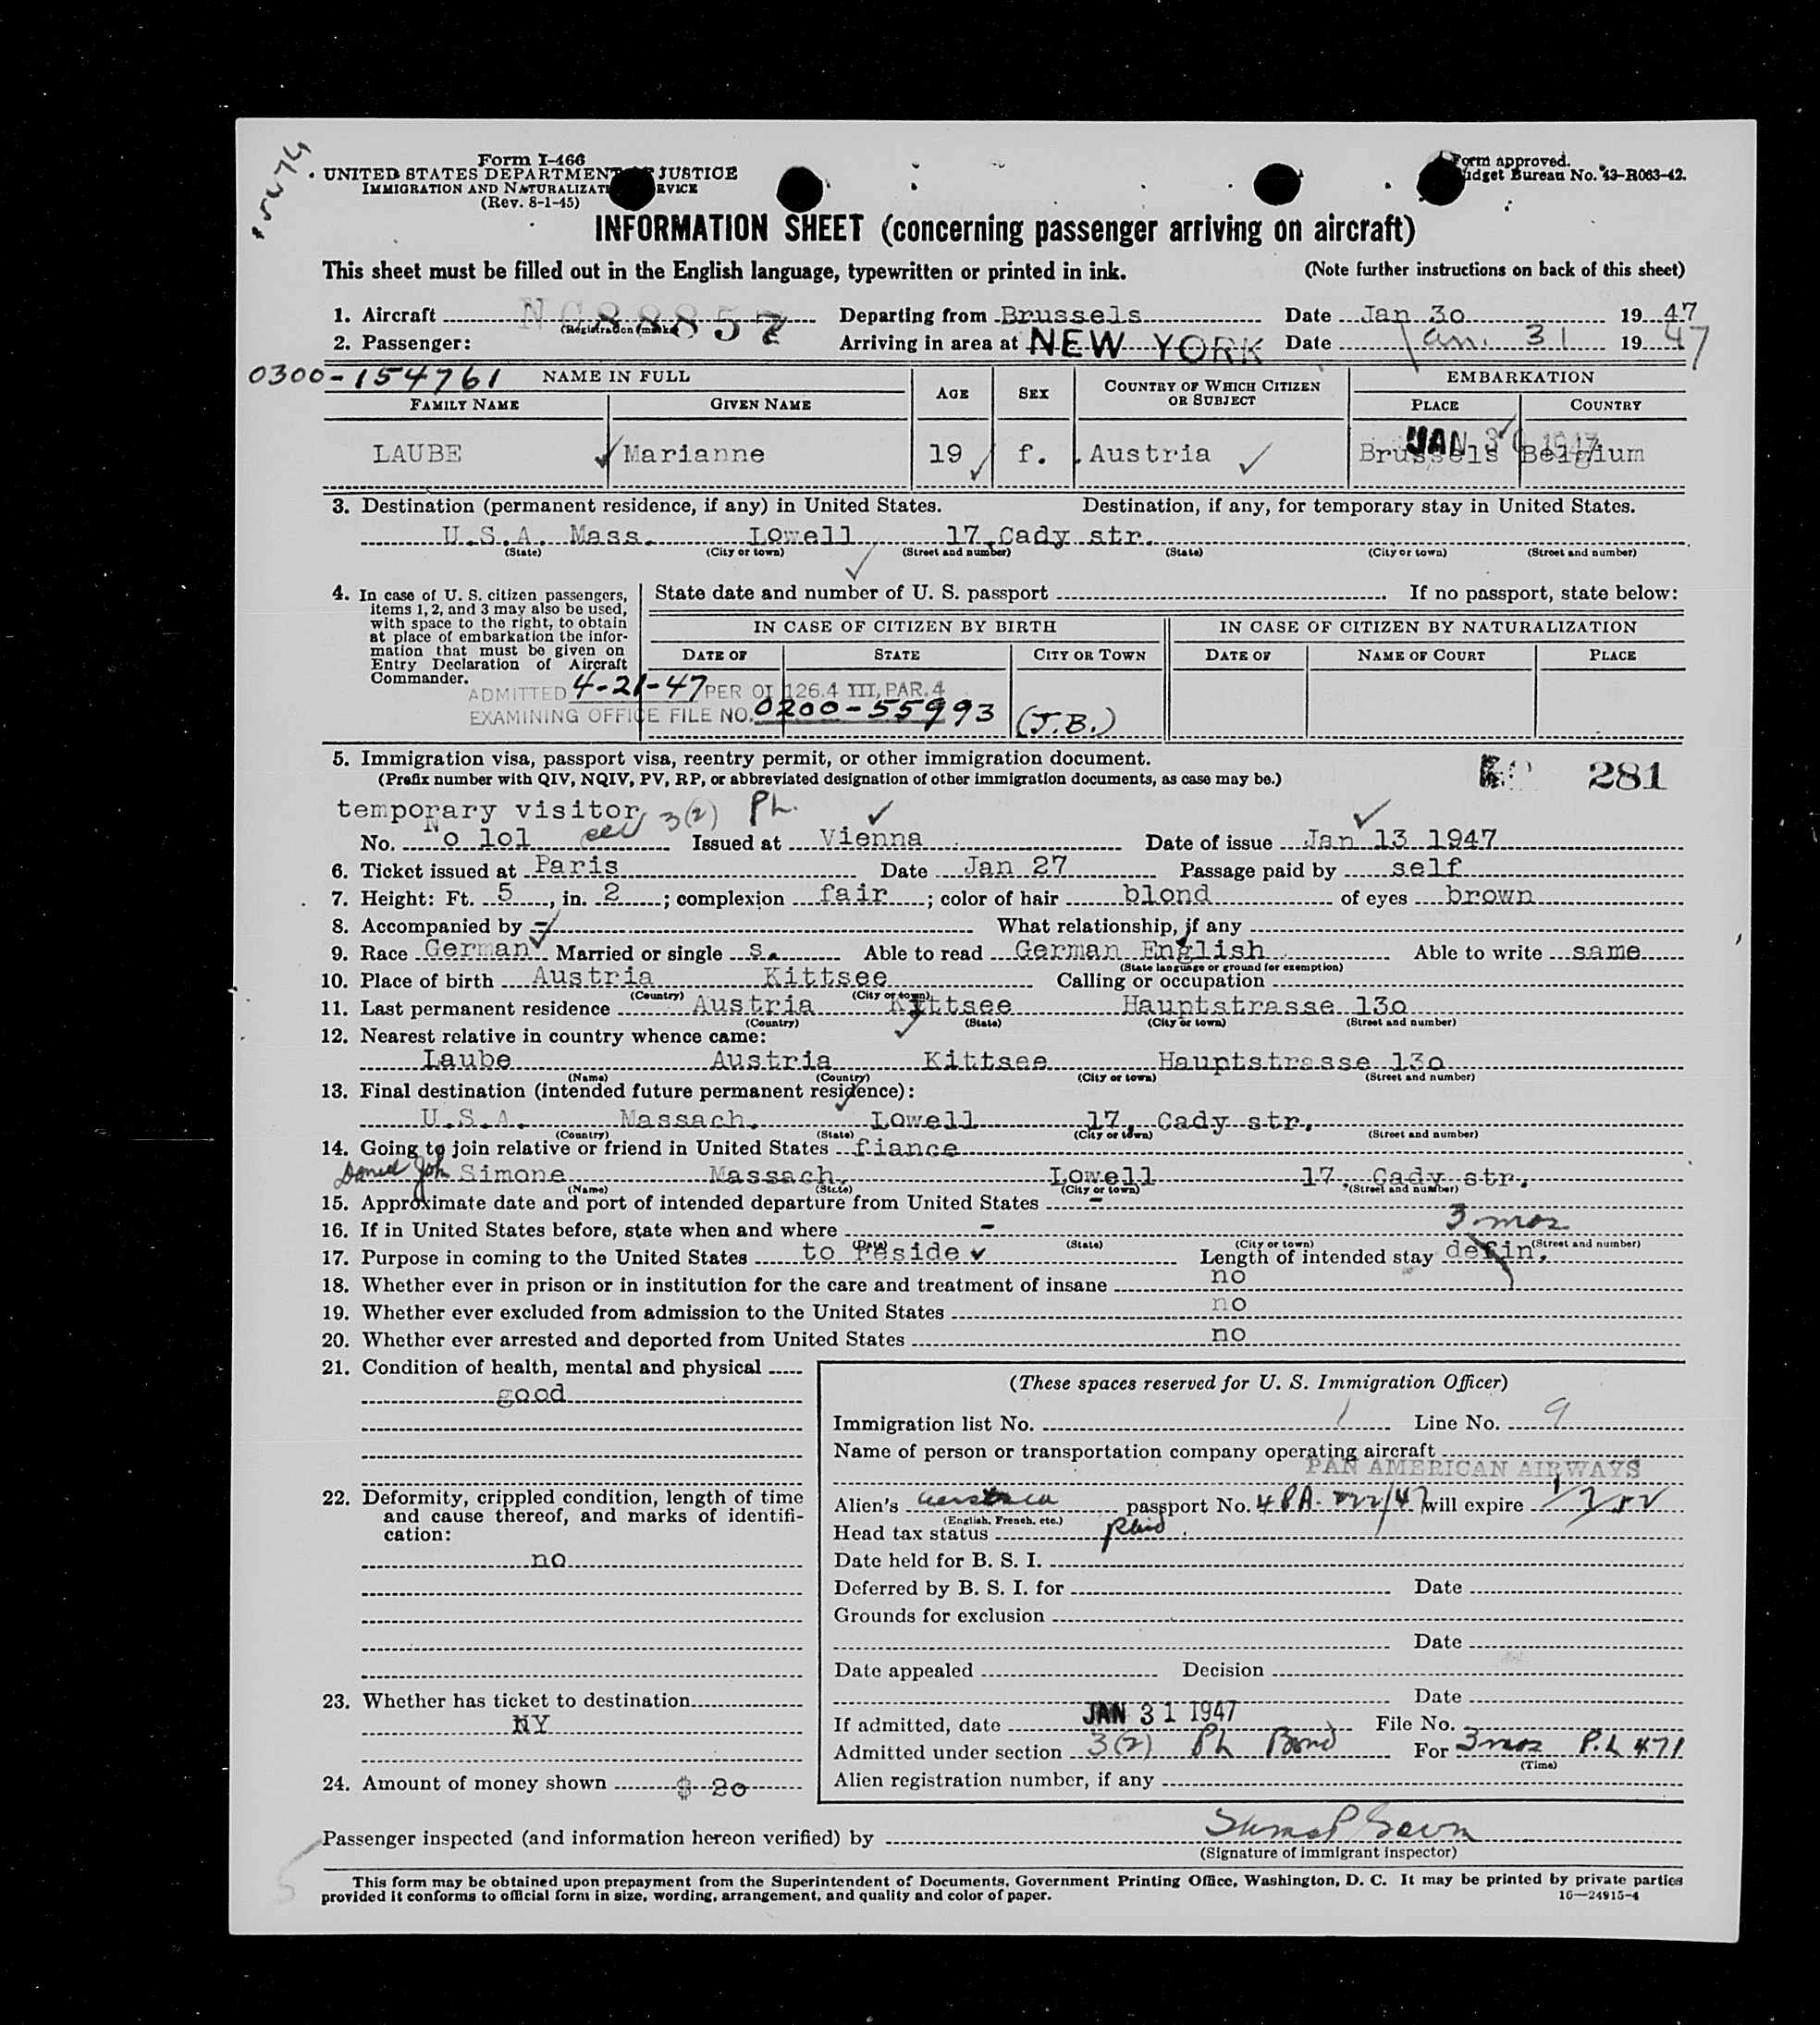 Form I-466
UNITED STATES DEPARTMENT JUSTICE
IMMIGRATION AND NATURALIZATI RVICE
(Rev. 8-1-45)
Form approved.
Budget Bureau No. 43-R063-42.
INFORMATION SHEET (concerning passenger arriving on aircraft)
This sheet must be filled out in the English language, typewritten or printed in ink. (Note further instructions on back of this sheet)
1. Aircraft NC 88857 Departing from Brussels Date Jan 3o 19 47
(Registration marks)
2. Passenger: Arriving in area at NEW YORK Date Jan. 31 19 47
0300-154761 NAME IN FULL AGE SEX COUNTRY OF WHICH CITIZEN OR SUBJECT EMBARKATION
FAMILY NAME GIVEN NAME PLACE COUNTRY
JAN 30 1947
LAUBE Marianne 19 f. Austria Brussels Belgium
3. Destination (permanent residence, if any) in United States. Destination, if any, for temporary stay in United States.
U.S.A. Mass. Lowell 17 Cady str.
(State) (City or town) (Street and number) (State) (City or town) (Street and number)
4. In case of U. S. citizen passengers, items 1, 2, and 3 may also be used, with space to the right, to obtain at place of embarkation the information that must be given on Entry Declaration of Aircraft Commander.
State date and number of U. S. passport If no passport, state below:
IN CASE OF CITIZEN BY BIRTH IN CASE OF CITIZEN BY NATURALIZATION
DATE OF STATE CITY OR TOWN DATE OF NAME OF COURT PLACE
ADMITTED 4-21-47 PER OI 126.4 III, PAR. 4
EXAMINING OFFICE FILE NO. 0200-55993 (J.B.)
5. Immigration visa, passport visa, reentry permit, or other immigration document.
(Prefix number with QIV, NQIV, PV, RP, or abbreviated designation of other immigration documents, as case may be.) 281
temporary visitor 3(2) Ph.
No. No lol Issued at Vienna Date of issue Jan 13 1947
6. Ticket issued at Paris Date Jan 27 Passage paid by self
7. Height: Ft. 5, in. 2; complexion fair; color of hair blond of eyes brown
8. Accompanied by - What relationship, if any
9. Race German Married or single s. Able to read German English Able to write same
(State language or ground for exemption)
10. Place of birth Austria Kittsee Calling or occupation
(Country) (City or town)
11. Last permanent residence Austria Kittsee Hauptstrasse 13o
(Country) (State) (City or town) (Street and number)
12. Nearest relative in country whence came:
Laube Austria Kittsee Hauptstrasse 13o
(Name) (Country) (City or town) (Street and number)
13. Final destination (intended future permanent residence):
U.S.A. Massach. Lowell 17, Cady str.
(Country) (State) (City or town) (Street and number)
14. Going to join relative or friend in United States fiance
Daniel John Simone Massach. Lowell 17. Cady str.
(Name) (State) (City or town) (Street and number)
15. Approximate date and port of intended departure from United States -
16. If in United States before, state when and where - 3 mos
(Date) (State) (City or town) (Street and number)
17. Purpose in coming to the United States to Reside Length of intended stay defin.
18. Whether ever in prison or in institution for the care and treatment of insane no
19. Whether ever excluded from admission to the United States no
20. Whether ever arrested and deported from United States no
21. Condition of health, mental and physical
good
22. Deformity, crippled condition, length of time and cause thereof, and marks of identification:
no
23. Whether has ticket to destination
NY
24. Amount of money shown $ 2o
(These spaces reserved for U. S. Immigration Officer)
Immigration list No. 1 Line No. 9
Name of person or transportation company operating aircraft
PAN AMERICAN AIRWAYS
Alien's passport No. will expire
(English, French, etc.)
Head tax status Paid
Date held for B. S. I.
Deferred by B. S. I. for Date
Grounds for exclusion
Date
Date appealed Decision
Date
If admitted, date JAN 31 1947 File No.
Admitted under section 3(2) Ph Bond For 3 mos P.L 471
(Time)
Alien registration number, if any
Passenger inspected (and information hereon verified) by
(Signature of immigrant inspector)
This form may be obtained upon prepayment from the Superintendent of Documents, Government Printing Office, Washington, D. C. It may be printed by private parties
provided it conforms to official form in size, wording, arrangement, and quality and color of paper. 16—24915-4